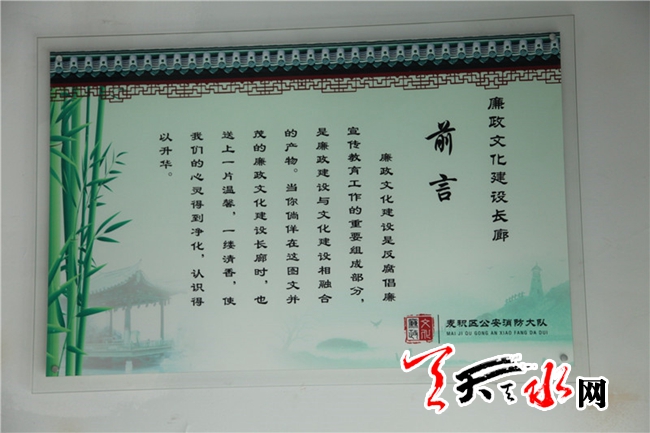 廉政文化建设长廊
前言
廉政文化建设是反腐倡廉
宣传教育工作的重要组成部分，
是廉政建设与文化建设相融合
的产物。当你倘佯在这图文并
茂的廉政文化建设长廊时，也
送上一片温馨，一缕清香，使
我们的心灵得到净化，认识得
以升华。
麦积区公安消防大队
MAI JI QU GONG AN XIAO FANG DA DUI
天天天水网